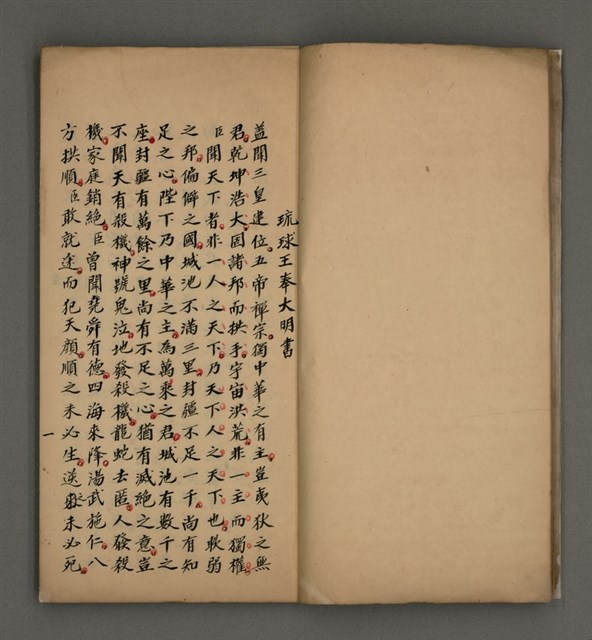 琉球王奉大明書
蓋聞三皇建位五帝禪宗獨中華之有主豈夷狄之無
君乾坤浩大固諸邦而拱手宇宙洪荒非一主而獨權
臣聞天下者非一人之天下乃天下人之天下也軟弱
之邦偏僻之國城池不滿三里封疆不足一千尚有知
足之心陛下乃中華之主為萬乘之君城池有數千之
座封疆有萬餘之里尚有不足之心猶有滅絶之意豈
不聞天有發殺機神號鬼泣地發殺機龍蛇去匿人發殺
機家庭銷絶臣曾聞堯舜有德四海來降湯武施仁八
方拱順臣敢就途而犯天顔順之未必生逆之未必死
一